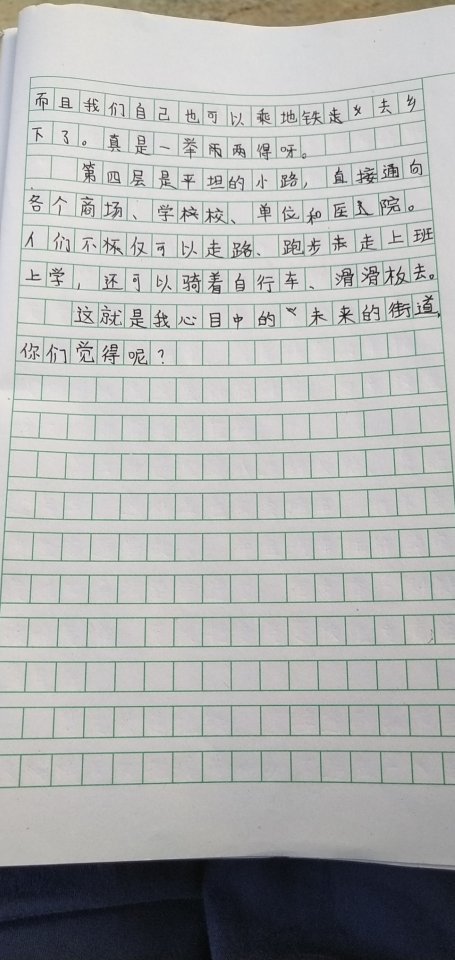 而且我们自己也可以乘地铁走去乡
下了。真是一举两两得呀。
第四层是平坦的小路，直接通向
各个商场、学校校、单位和医院。
人们不怀仅可以走路、跑步走走上班
上学，还可以骑着自行车、滑滑板去。
这就是我心目中的未来的街道，
你们觉得呢？